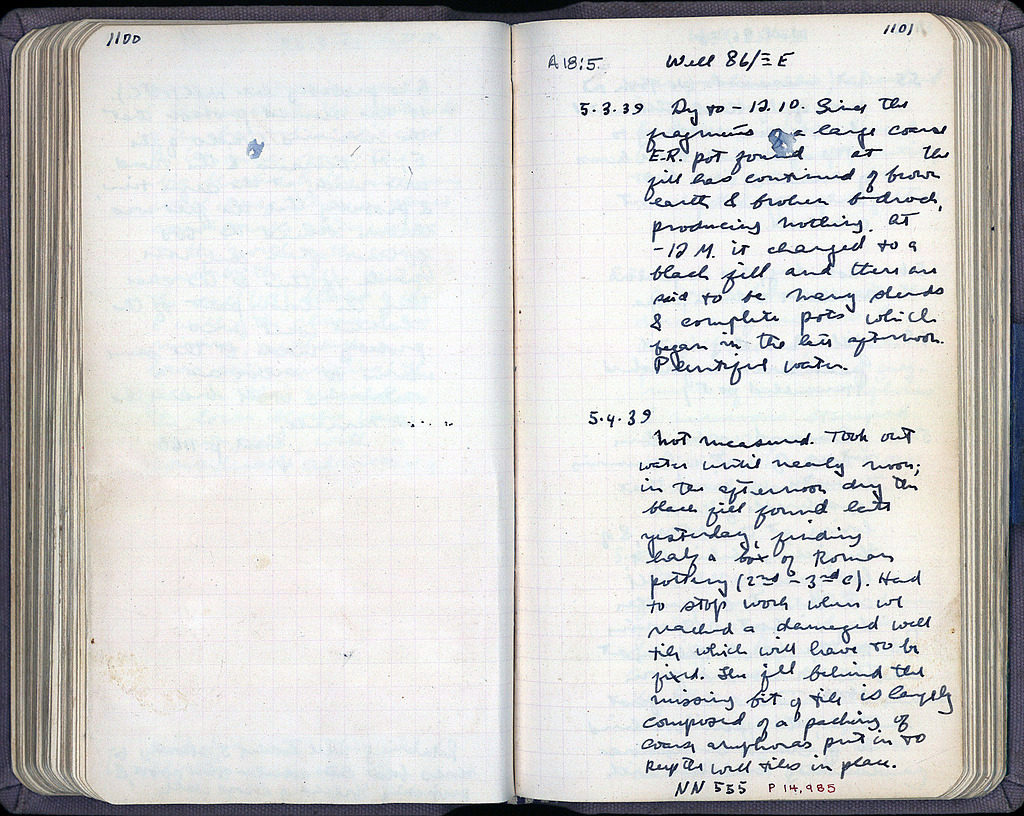 1100
1101
A 18:5. Well 86/Ξ E
5.3.39 Dug to -12.10. Since the
fragments of a large coarse
E.R. pot found at the
fill has continued of brown
earth & broken bedrock,
producing nothing. At
-12 M. it changed to a
black fill and there are
said to be many sherds
& complete pots which
began in the late afternoon.
Plentiful water.
5.4.39
Not measured. Took out
water until nearly noon;
in the afternoon dug the
black fill found late
yesterday, finding
half a box of Roman
pottery (2nd - 3rd c). Had
to stop work when we
reached a damaged well
tile which will have to be
fixed. The fill behind the
missing bit of tile is largely
composed of a packing of
coarse amphoras put in to
keep the well tiles in place.
NN 555 P 14,985